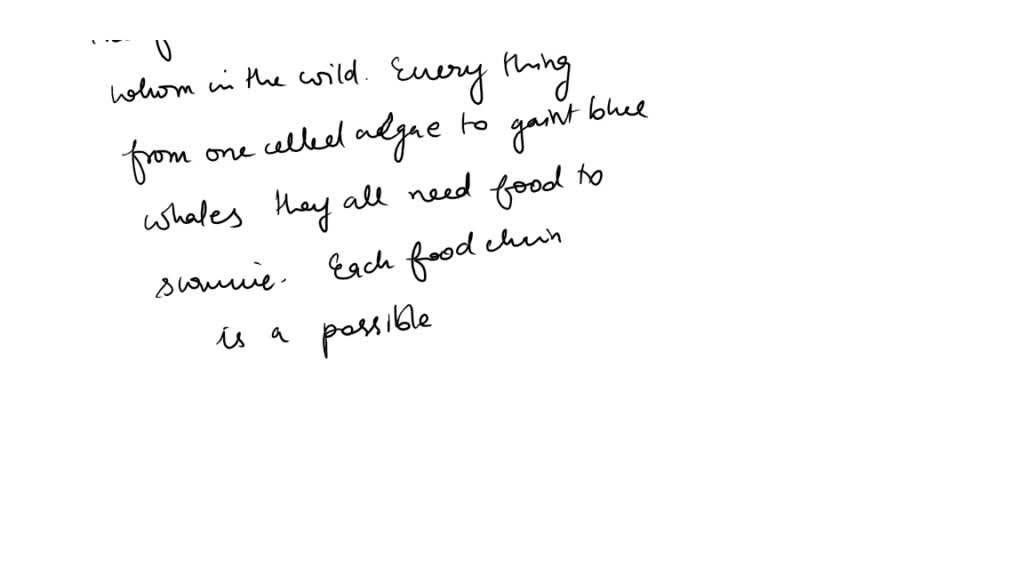 whom in the wild. Every thing
from one celled algae to gaint blue
whales they all need food to
survive. Each food chain
is a possible